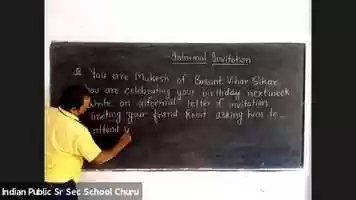 Informal Invitation
Q You are Mukesh of Basant Vihar Sikar
You are celebrating your birthday next week
Write an informal letter of invitation
inviting your friend Rohit asking him to
attend y
Indian Public Sr Sec School Churu